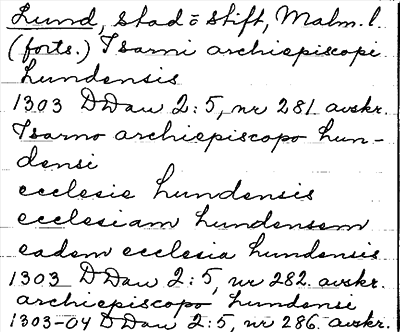 Lund, stad o stift, Malm. l.
(forts.) Isarni archiepiscopi
lundensis
1303 DDan 2:5, nr 281 avskr.
Isarno archiepiscopo lun-
densi
ecclesie lundensis
ecclesiam lundensem
eadem ecclesia lundensis
1303 DDan 2:5, nr 282. avskr.
archiepiscopo lundensi
1303-04 DDan 2:5, nr 286 avskr.